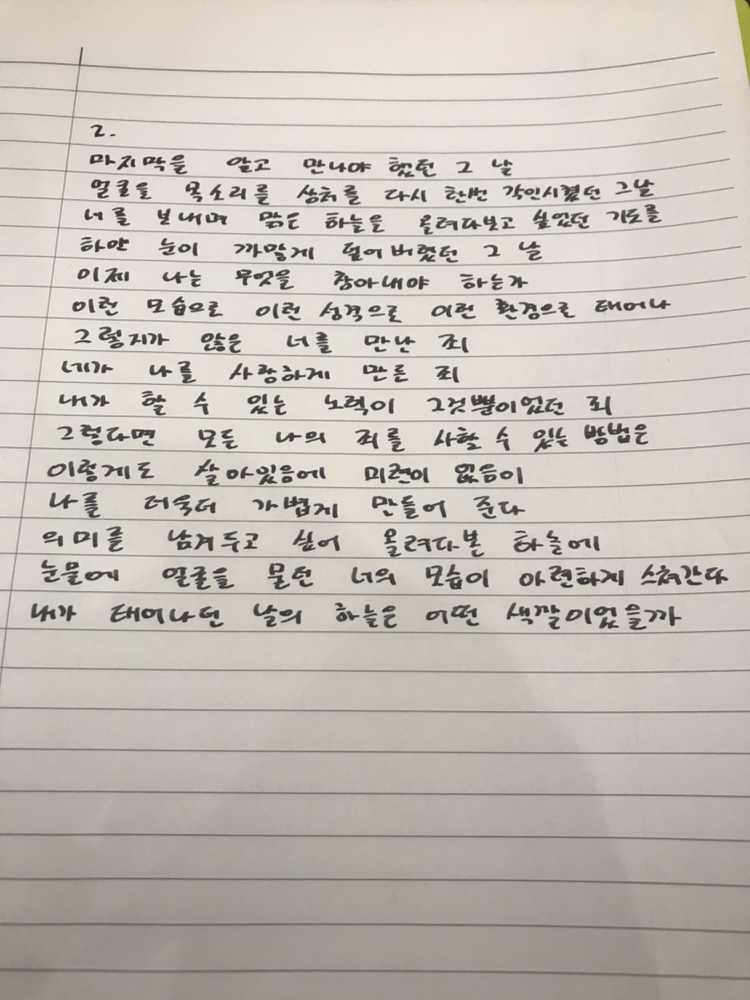 2.
마지막을 알고 만나야 했던 그 날
얼굴을 목소리를 상처를 다시 한번 각인시켰던 그날
너를 보내며 맑은 하늘을 올려다보고 싶었던 기도를
하얀 눈이 까맣게 덮어버렸던 그 날
이제 나는 무엇을 참아내야 하는가
이런 모습으로 이런 성격으로 이런 환경으로 태어나
그렇지가 않은 너를 만난 죄
네가 나를 사랑하게 만든 죄
내가 할 수 있는 노력이 그것뿐이었던 죄
그렇다면 모든 나의 죄를 사할 수 있는 방법은
이렇게도 살아있음에 미련이 없음이
나를 더욱더 가볍게 만들어 준다
의미를 남겨두고 싶어 올려다본 하늘에
눈물에 얼굴을 묻던 너의 모습이 아련하게 스쳐간다
내가 태어나던 날의 하늘은 어떤 색깔이었을까